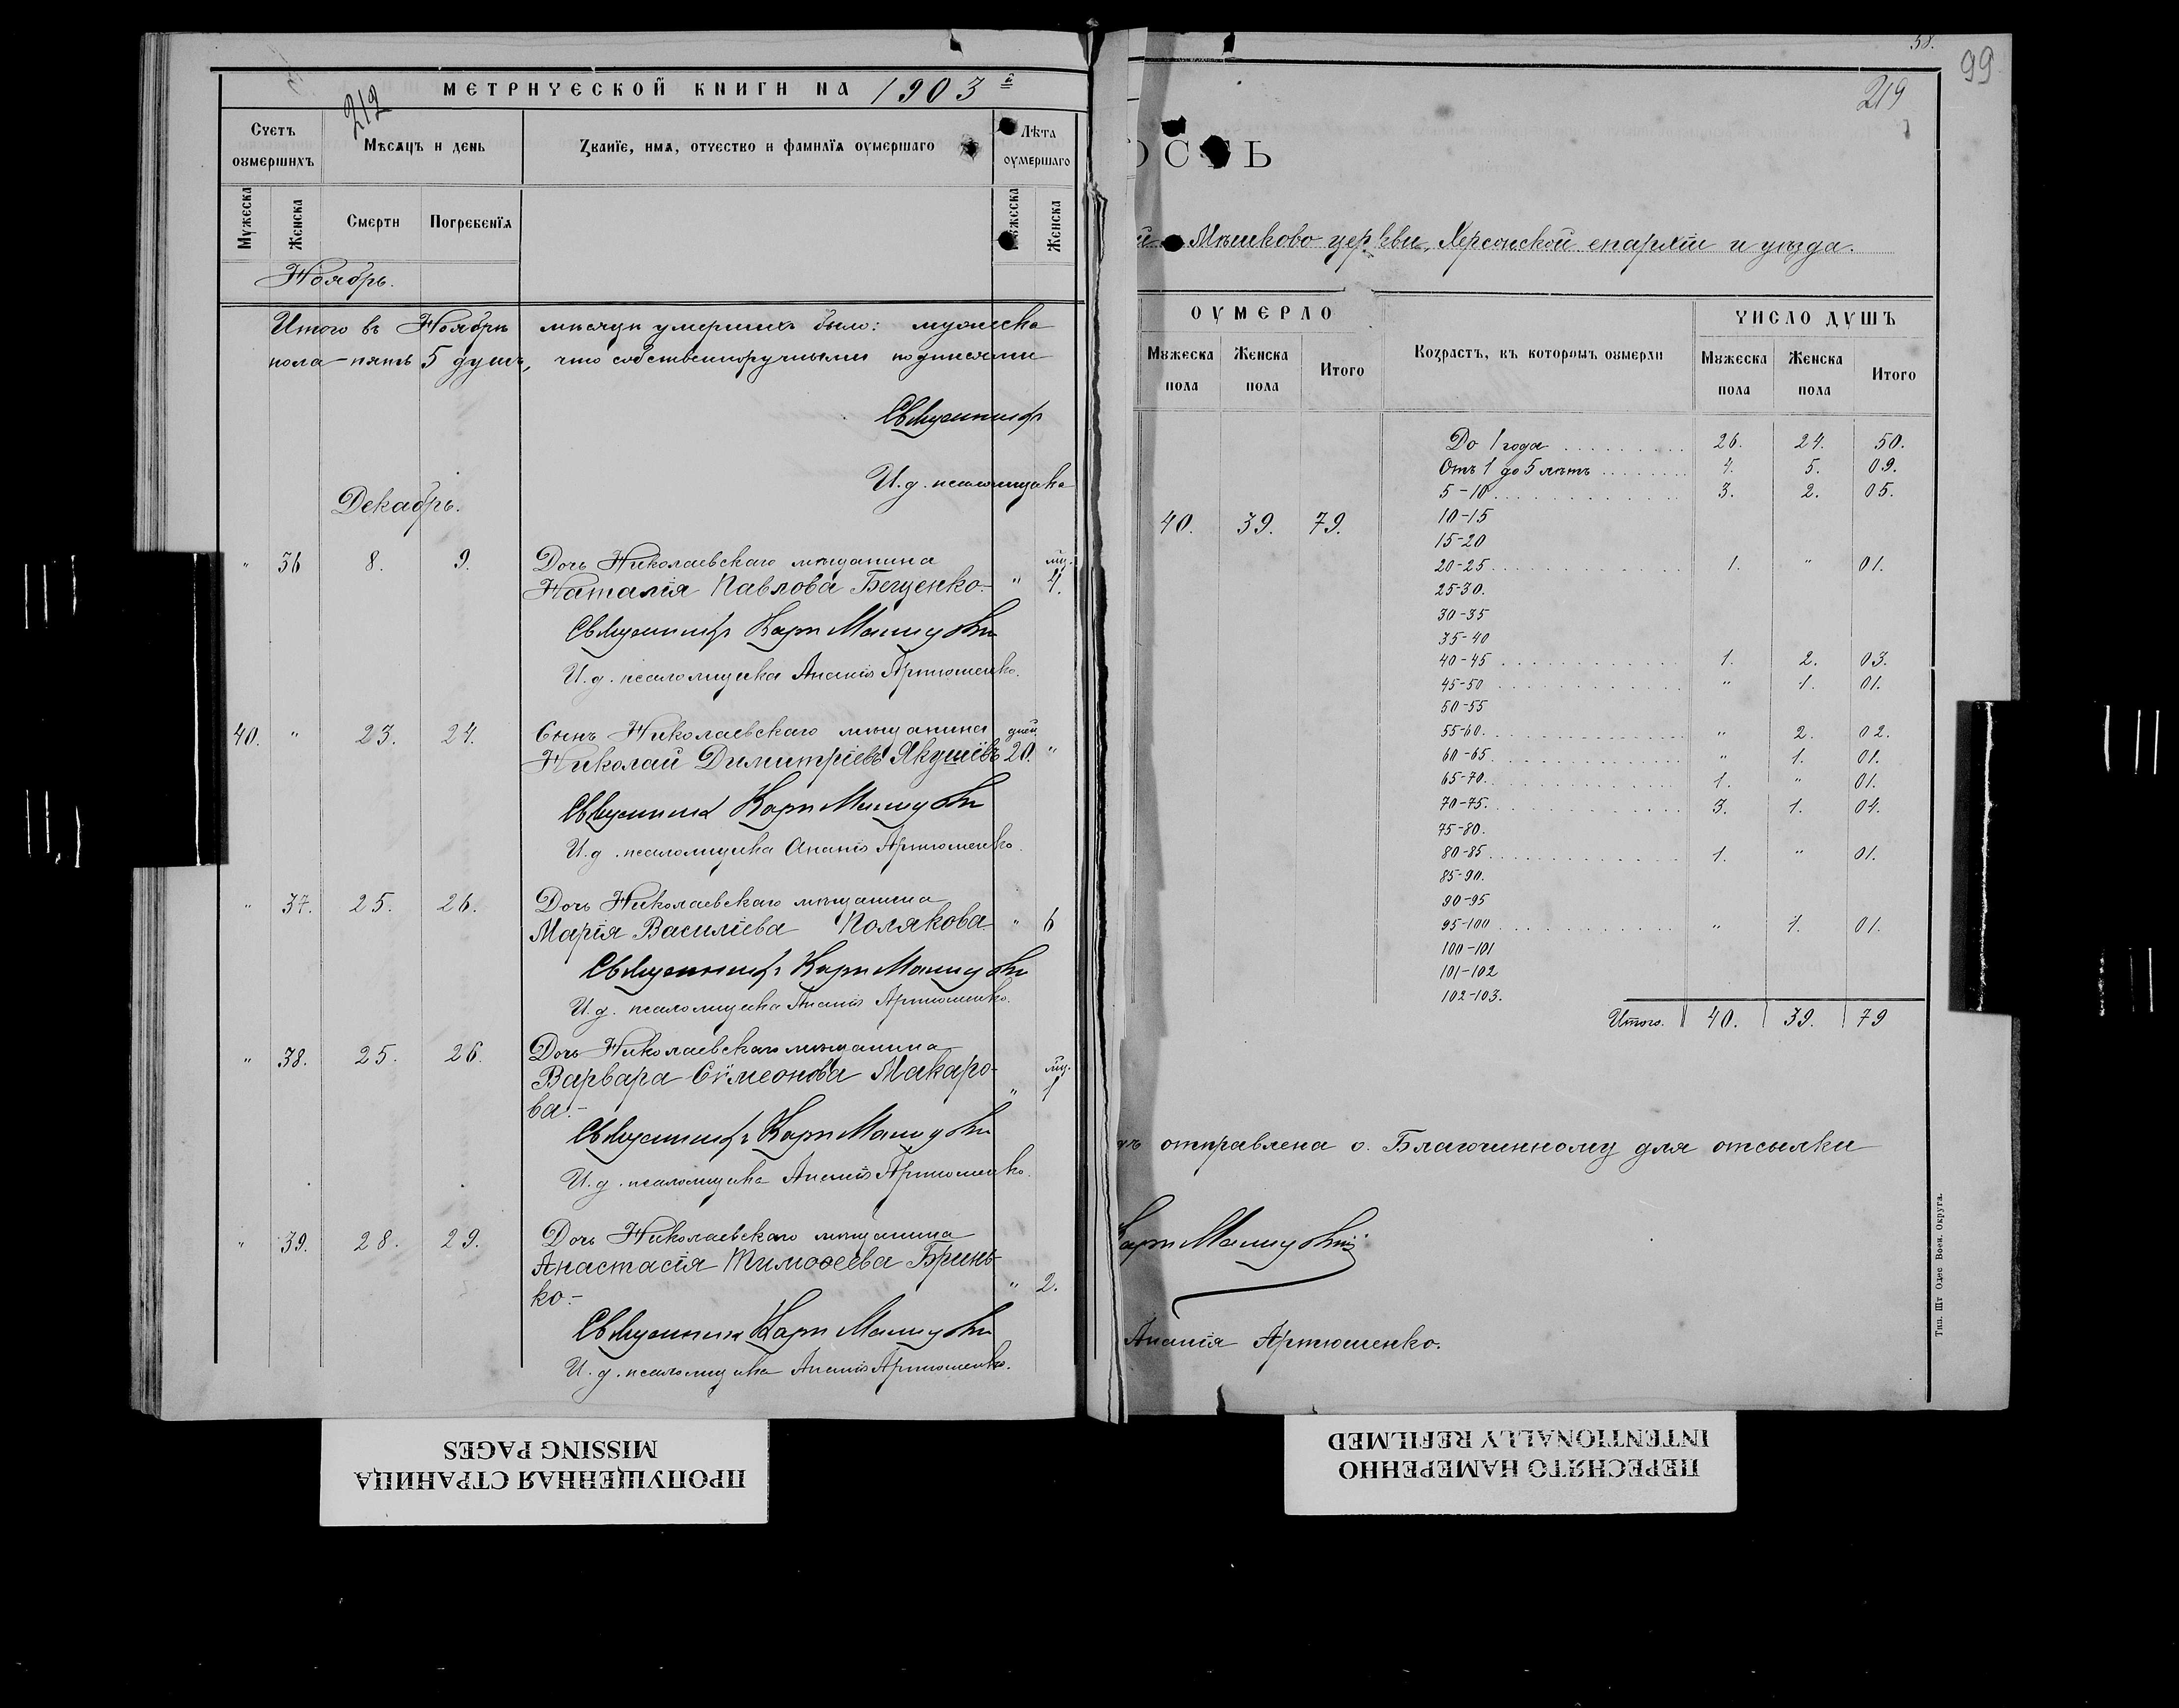 МЕТРИЧЕСКОЙ КНИГИ НА 1903 й
212
Счетъ оумершихъ
Мѣсяцъ и день
Званіе, имя, отчество и фамилія оумершаго
Лѣта оумершаго
Мужеска
Женска
Смерти
Погребенія
Мужеска
Женска
Ноябрь.
Итого въ Ноябрѣ мѣсяцѣ умершихъ было: мужеска
пола - пять 5 душъ, что собственноручными подписями
Священникъ
И. д. псаломщика
Декабрь.
" 36 8. 9. Дочь Николаевскаго мѣщанина мц.
Наталія Павлова Бещенко.- " 4.
Священникъ Карп
И. д. псаломщика Ананія Артюшенко.
40. " 23. 24. Сынъ Николаевскаго мѣщанина дней
Николай Димитріевъ Якушевъ 20. "
Священникъ Карп
И. д. псаломщика Ананія Артюшенко.
" 37. 25. 26. Дочь Николаевскаго мѣщанина
Марія Василіева Полякова " 6
Священникъ Карп
И. д. псаломщика Ананія Артюшенко.
" 38. 25. 26. Дочь Николаевскаго мѣщанина мц.
Варвара Сѵмеонова Макаро- " 1
ва.-
Священникъ Карп
И. д. псаломщика Ананія Артюшенко.
" 39. 28. 29. Дочь Николаевскаго мѣщанина
Анастасія Тимоѳеева Бринь-
ко.- " 2.
Священникъ Карп
И. д. псаломщика Ананія Артюшенко.
58.
99
219
ОСТЬ
й Мѣшково церкви, Херсонской епархіи и уѣзда.
ОУМЕРЛО
Мужеска пола
Женска пола
Итого
Возрастъ, въ которомъ оумерли
ЧИСЛО ДУШЪ
Мужеска пола
Женска пола
Итого
40. 39. 79.
До 1 года 26. 24. 50.
Отъ 1 до 5 лѣтъ 4. 5. 09.
5-10 3. 2. 05.
10-15
15-20
20-25 1. " 01.
25-30.
30-35
35-40
40-45 1. 2. 03.
45-50 " 1. 01.
50-55
55-60. " 2. 02.
60-65 " 1. 01.
65-70. 1. " 01.
70-75. 3. 1. 04.
75-80.
80-85 1. " 01.
85-90.
90-95
95-100 " 1. 01.
100-101
101-102
102-103.
Итого. 40. 39. 79
отправлена о. Благочинному для отсылки
Ананія Артюшенко.
Тип. Шт Одес Воен. Округа.
ПРОПУЩЕННАЯ СТРАНИЦА
MISSING PAGES
ПЕРЕСНЯТО НАМЕРЕННО
INTENTIONALLY REFILMED